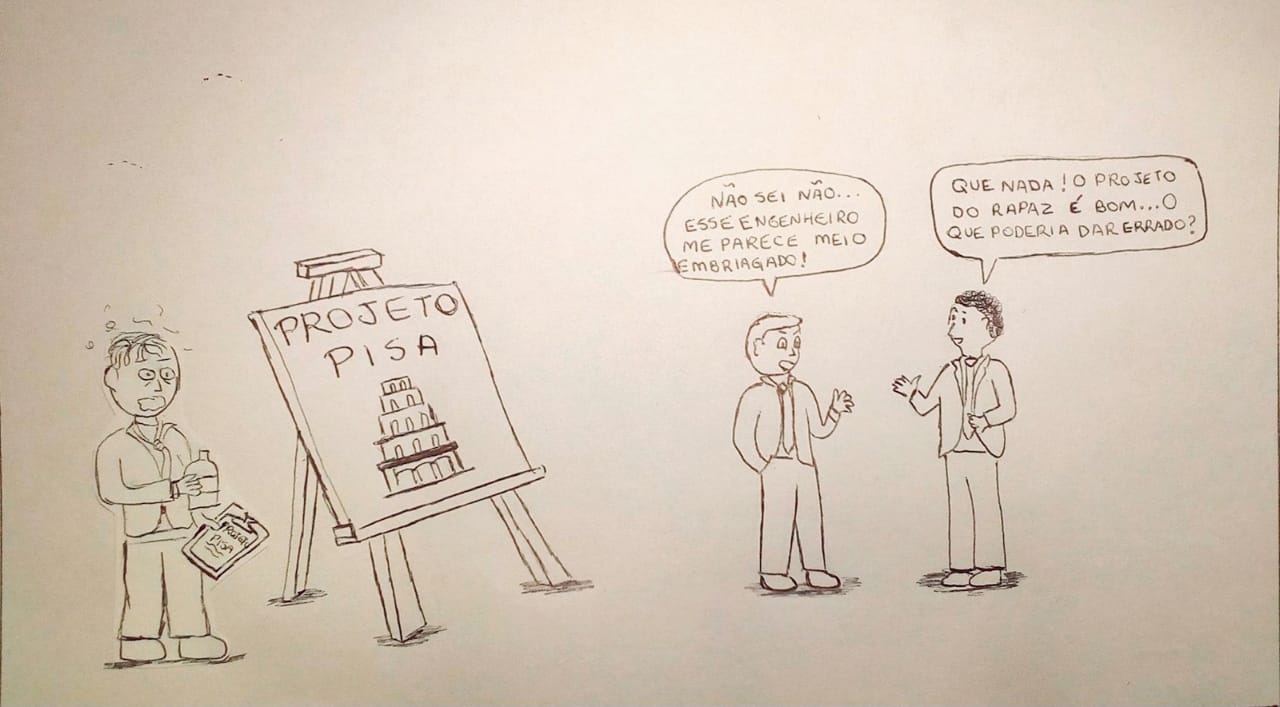 PROJETO
PISA
PROJETO
PISA
NÃO SEI NÃO...
ESSE ENGENHEIRO
ME PARECE MEIO
EMBRIAGADO!
QUE NADA! O PROJETO
DO RAPAZ É BOM... O
QUE PODERIA DAR ERRADO?